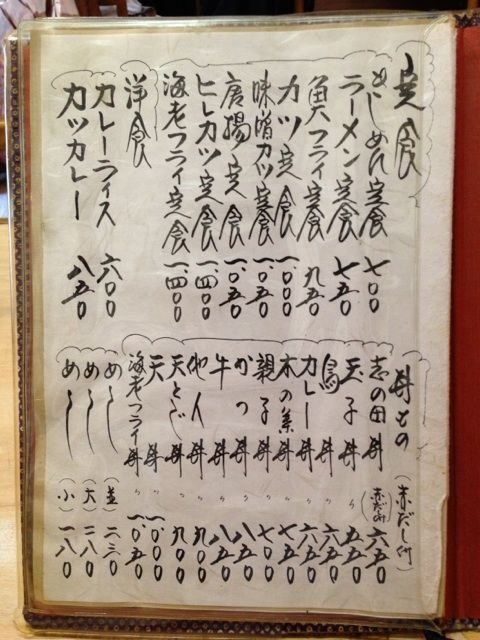 定食
きしめん定食 七〇〇
ラーメン定食 七五〇
魚フライ定食 九五〇
カツ定食 一、〇〇〇
味噌カツ定食 一、〇五〇
唐揚定食 一、〇五〇
ヒレカツ定食 一、四〇〇
海老フライ定食 一、四〇〇
洋食
カレーライス 六〇〇
カツカレー 八五〇
丼もの (赤だし付)
志の田丼 (赤だし付) 六五〇
玉子丼 〃 五五〇
鳥丼 〃 六五〇
カレー丼 〃 六五〇
木の葉丼 〃 六五〇
親子丼 〃 七〇〇
かつ丼 〃 八五〇
牛丼 〃 八五〇
他人丼 〃 九〇〇
天とじ丼 〃 九〇〇
天丼 〃 一、〇〇〇
海老フライ丼 〃 一、〇五〇
めし (並) 二三〇
めし (大) 二八〇
めし (小) 一八〇